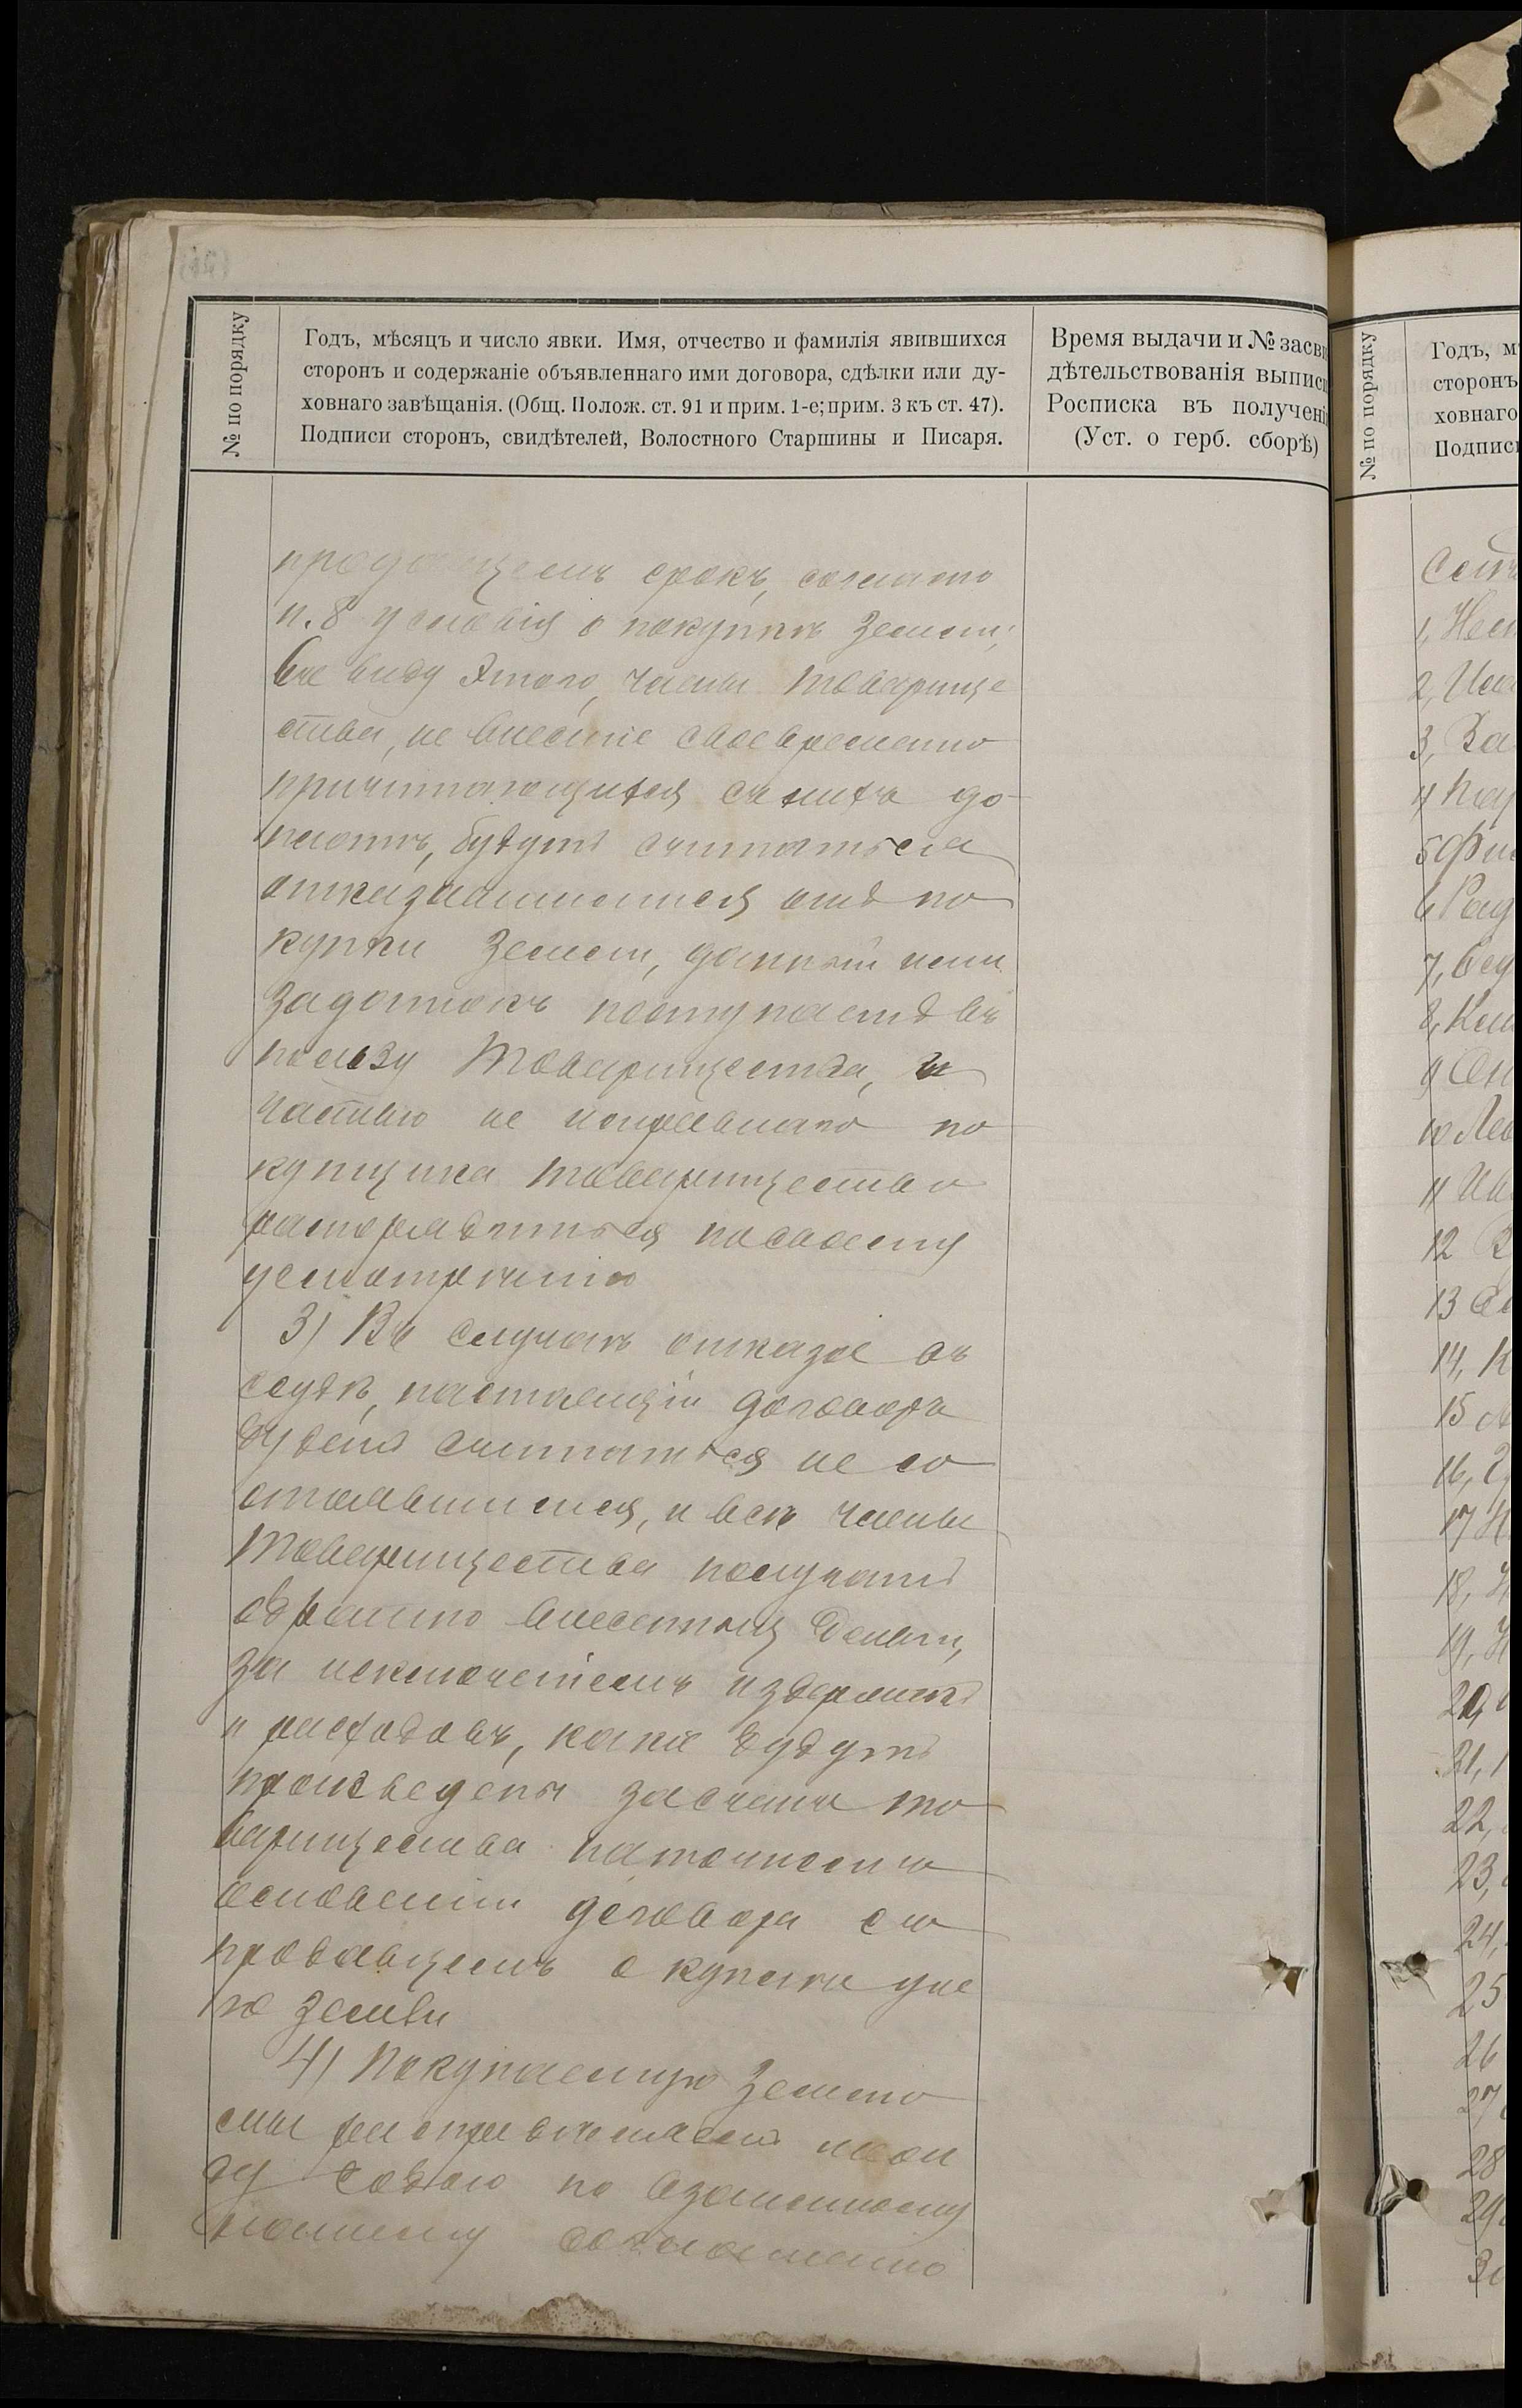 № по порядку
Годъ, мѣсяцъ и число явки. Имя, отчество и фамилія явившихся
сторонъ и содержаніе объявленнаго ими договора, сдѣлки или ду-
ховнаго завѣщанія. (Общ. Полож. ст. 91 и прим. 1-е; прим. 3 къ ст. 47).
Подписи сторонъ, свидѣтелей, Волостного Старшины и Писаря.
Время выдачи и № засви
дѣтельствованія выписи
Росписка въ полученіи
(Уст. о герб. сборѣ)
срокъ, согласно
п. 8 условія о покупкѣ земли;
виду этого, члены товарище
ства, не внесшіе своевременно
причитающихся съ нихъ до-
платъ, будутъ считаться
отказавшимися отъ по
купки земли, данный ими
задатокъ поступаетъ въ
пользу Товарищества, и
частью не исправнаго по
купщика товарищество
распорядиться по своему
усмотренію
3) Въ случаѣ отказа въ
ссудѣ, настоящій договоръ
будетъ считаться не со
стоявшимся, и всѣ члены
Товарищества получатъ
обратно внесенныя деньги,
за исключеніемъ издержекъ
и расходовъ, какіе будутъ
произведены за счетъ то
варищества на
основаніи договора съ
продавцемъ о купли
земли
4) Покупаемую землю
мы распредѣляемъ меж
ду собою по взаимному
нашему соглашенію
№ по порядку
Годъ, м
сторонъ
ховнаго
Подписи
1,
2,
3,
4
5
6
7,
8,
9
10
11
12
13
14,
15
16,
17
18,
19,
20,
21,
22,
23,
24,
25
26
27
28
29